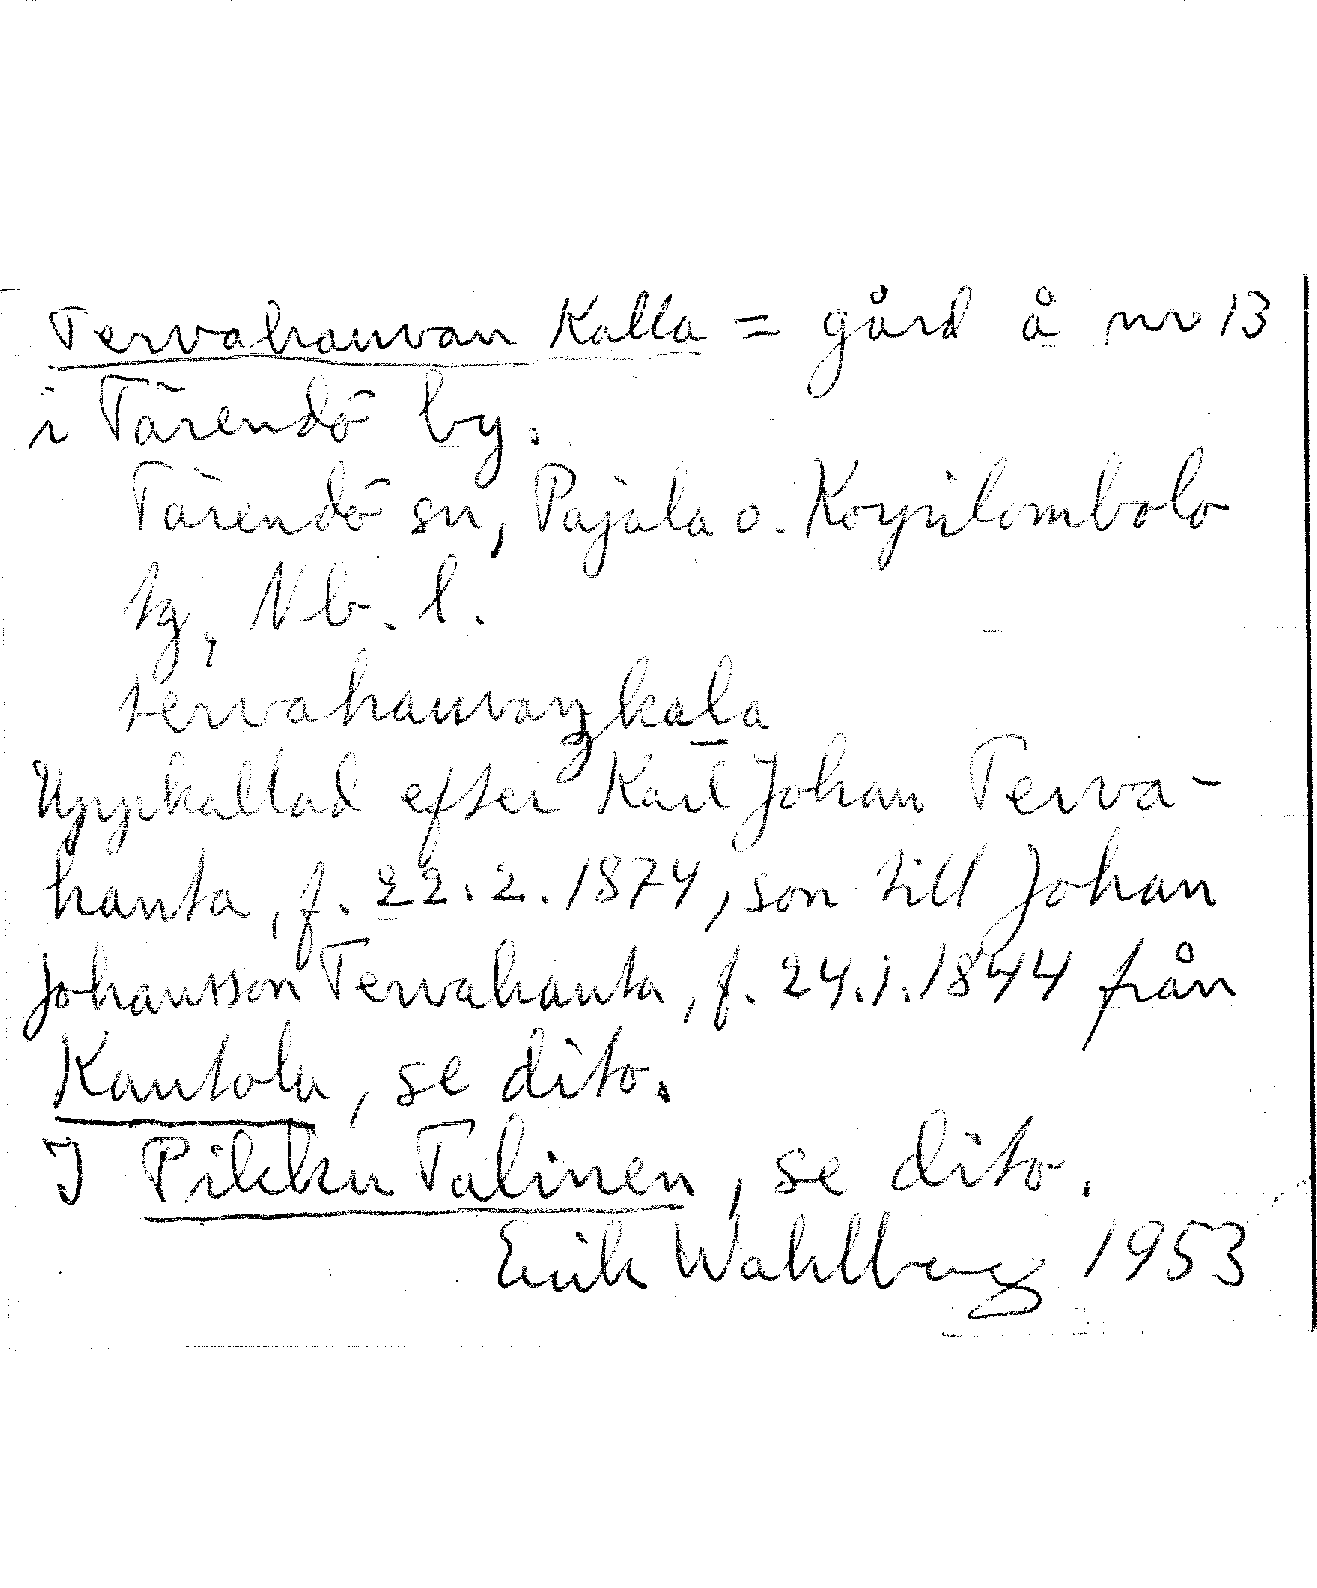 Tervahauvan Kalla = gård å nr 13
i Tärendö by.
Tärendö sn, Pajala o. Korpilombolo
tg, Nb. l.
tervahauvaŋkal̲a
Uppkallad efter Karl Johan Terva-
hauta, f. 22.2.1874, son till Johan
Johansson Tervahauta, f. 24.1.1844 från
Kantola, se dito.
I Pikku Talinen, se dito.
Erik Wahlberg 1953